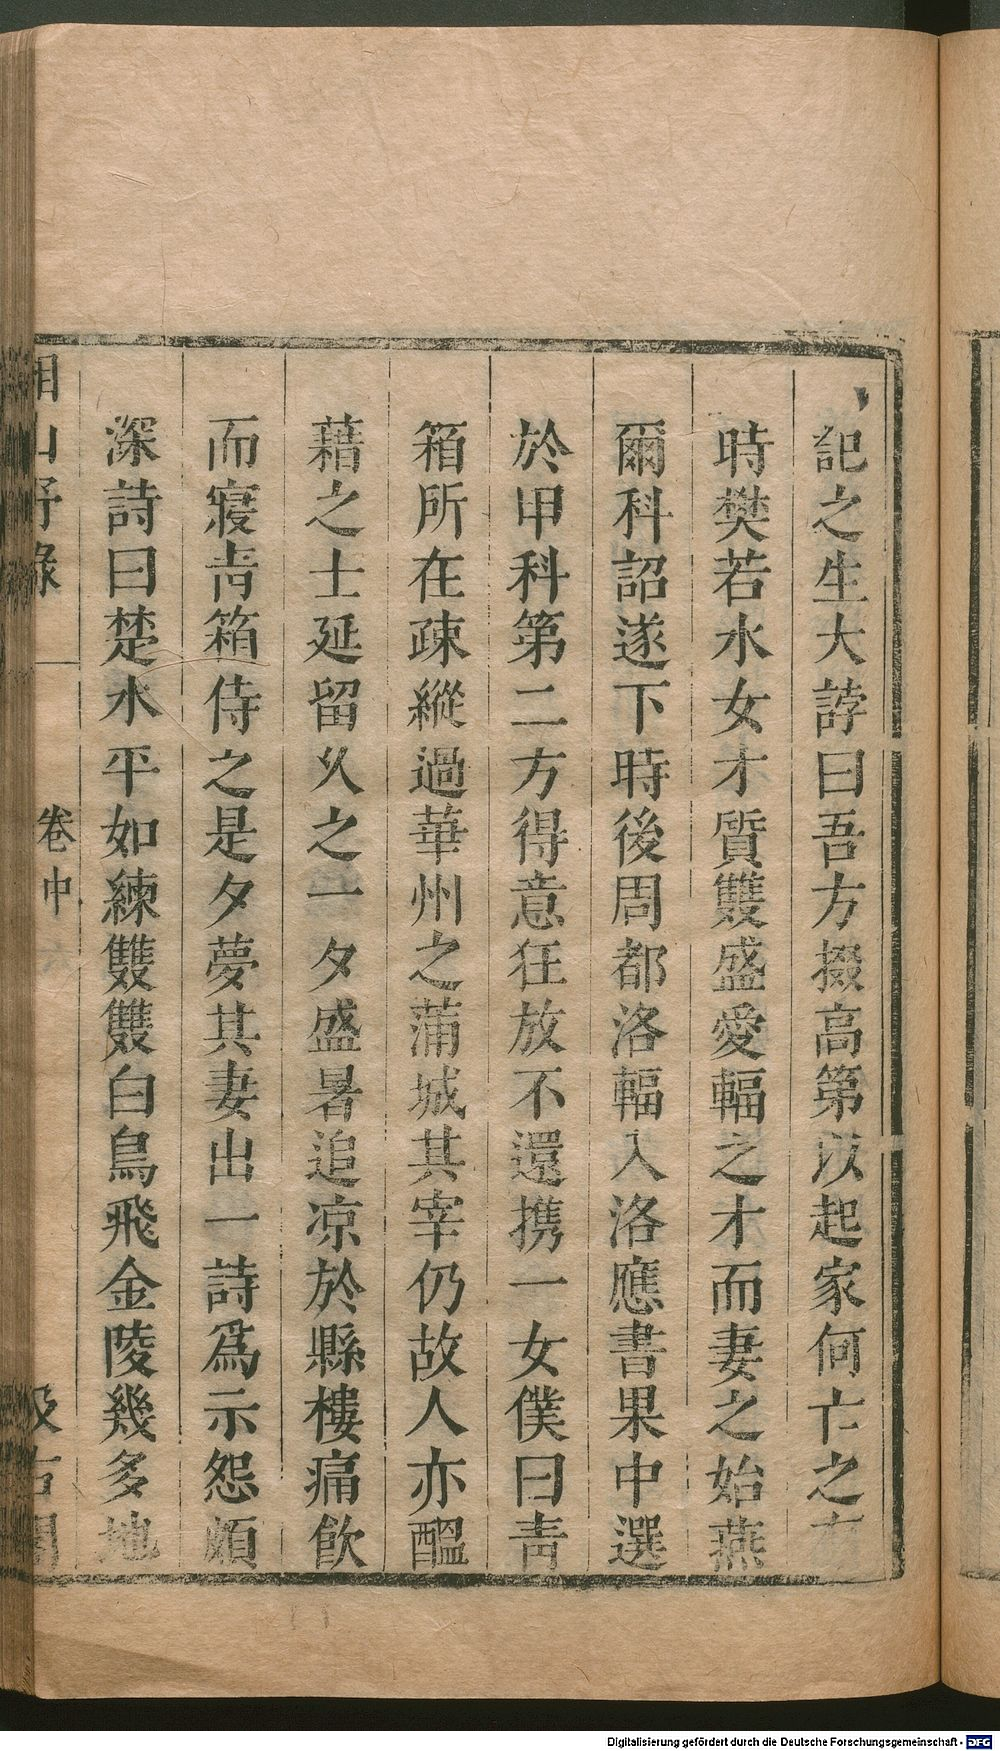 記之生大誖曰吾方掇高第以起家何亡之有
時樊若水女才質雙盛愛輻之才而妻之始燕
爾科詔遂下時後周都洛輻入洛應書果中選
於甲科第二方得意狂放不還携一女僕曰青
箱所在疎縱過華州之蒲城其宰仍故人亦醞
藉之士延留久之一夕盛暑追凉於縣樓痛飲
而寝青箱侍之是夕夢其妻出一詩爲示怨頗
深詩曰楚水平如練雙雙白鳥飛金陵幾多地
湘山野錄
卷中
汲古閣
Digitalisierung gefördert durch die Deutsche Forschungsgemeinschaft - DFG